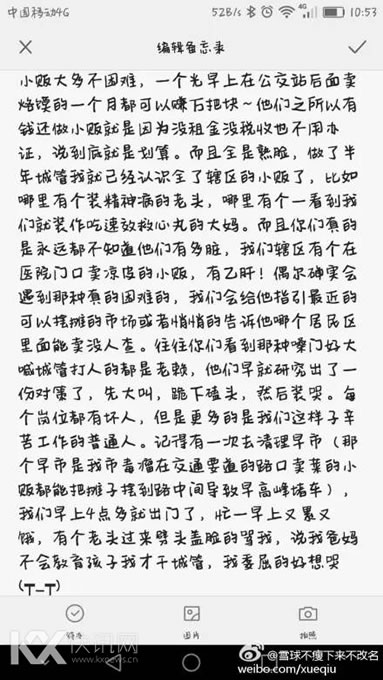 中国移动4G 528/s 4G 10:53
编辑备忘录
小贩大多不困难，一个光早上在公交站后面卖
烧馍的一个月都可以赚万把块～他们之所以有
钱还做小贩就是因为没租金没税收也不用办
证，说到底就是划算。而且全是熟脸，做了半
年城管我就已经认识全了辖区的小贩了，比如
哪里有个装精神病的老头，哪里有个一看到我
们就装作吃速效救心丸的大妈。而且你们真的
是永远都不知道他们有多脏，我们辖区有个在
医院门口卖凉皮的小贩，有乙肝！偶尔确实会
遇到那种真的困难的，我们会给他指引最近的
可以摆摊的市场或者悄悄的告诉他哪个居民区
里面能卖没人查。往往你们看到那种嗓门好大
喊城管打人的都是老赖，他们早就研究出了一
份对策了，先大叫，跪下磕头，然后装哭。每
个岗位都有坏人，但是更多的是我们这样子辛
苦工作的普通人。记得有一次去清理早市（那
个早市是我市毒瘤在交通要道的路口卖菜的小
贩都能把摊子摆到路中间导致早高峰堵车），
我们早上4点多就出门了，忙一早上又累又
饿，有个老头过来劈头盖脸的骂我，说我爸妈
不会教育孩子我才干城管，我委屈的好想哭
(T_T)
待办 图片 拍照
KX 快讯网
www.kxnews.cn
@雪球不瘦下来不改名
weibo.com/xueqiu